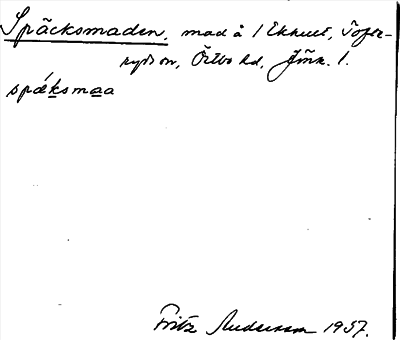 Späcksmaden, mad å 1 Ekhult, Tofte-
ryds sn, Östbo hd, Jönk. l.
spæksmaa
Fritz Andersson 1957.